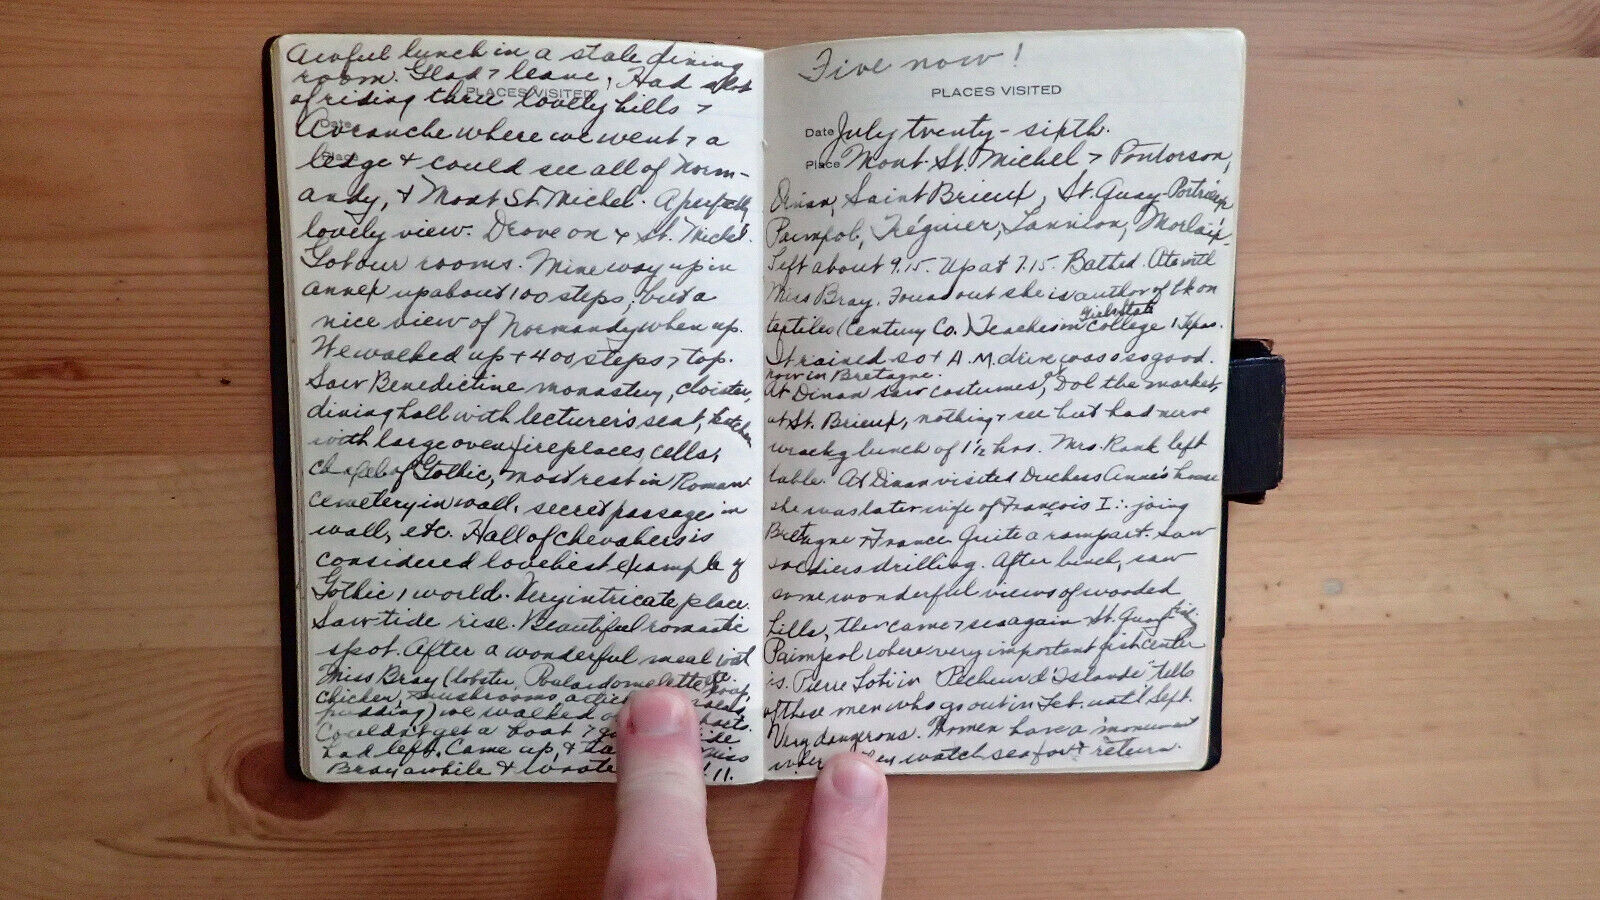 Awful lunch in a stale dining
room. Glad > leave. Had a lot
PLACES VISITED
of riding thru lovely hills >
Date
Avranche where we went > a
Place
ledge + could see all of Norm-
andy, + Mont St. Michel. A perfectly
lovely view. Drove on + St. Michel.
Got our rooms. Mine way up in
annex up about 100 steps, but a
nice view of Normandy when up.
We walked up + 400 steps > top.
Saw Benedictine monastery, cloister,
dining hall with lecturer's seat, kitchen
with large oven fireplaces cells,
chapel of Gothic, most rest in Roman
cemetery in wall, secret passage in
wall, etc. Hall of chevaliers is
considered loveliest example of
Gothic 1 world. Very intricate place.
Saw tide rise. Beautiful romantic
spot. After a wonderful meal with
Miss Bray (lobster, omelette soup,
chicken, mushrooms
pudding) we walked
Couldn't get a boat >
had left. Came up, +
Miss
Bray awhile + wrote ! 11.
Five now!
PLACES VISITED
Date July twenty-sixth.
Place Mont St. Michel > Pontorson,
Dinan, Saint Brieux, St. Quay-Portrieux
Paimpol, Tréguier, Lannion, Morlaix.
Left about 9.15. Up at 7.15. Bathed. Ate with
Miss Bray. Found out she is author of bk on
textiles (Century Co.) Teaches in Girls State College 1 Texas.
It rained so + A.M. drive was o so good.
now in Bretagne.
At Dinan saw costumes, at Dol the market,
at St. Brieux, nothing > see but had nerve
wracking lunch of 1½ hrs. Mrs. Rank left
table. At Dinan visited Duchess Anne's house
she was later wife of François I :. joing
Bretagne + France. Quite a rampart. Saw
soldiers drilling. After lunch, saw
some wonderful views of wooded
hills, then came > sea again St. Quay
Paimpol where very important fish center
is. Pierre Loti in "Pecheur d'Islande" tells
of these men who go out in Feb. until Sept.
Very dangerous. Women have a monument
where they watch sea for > return.